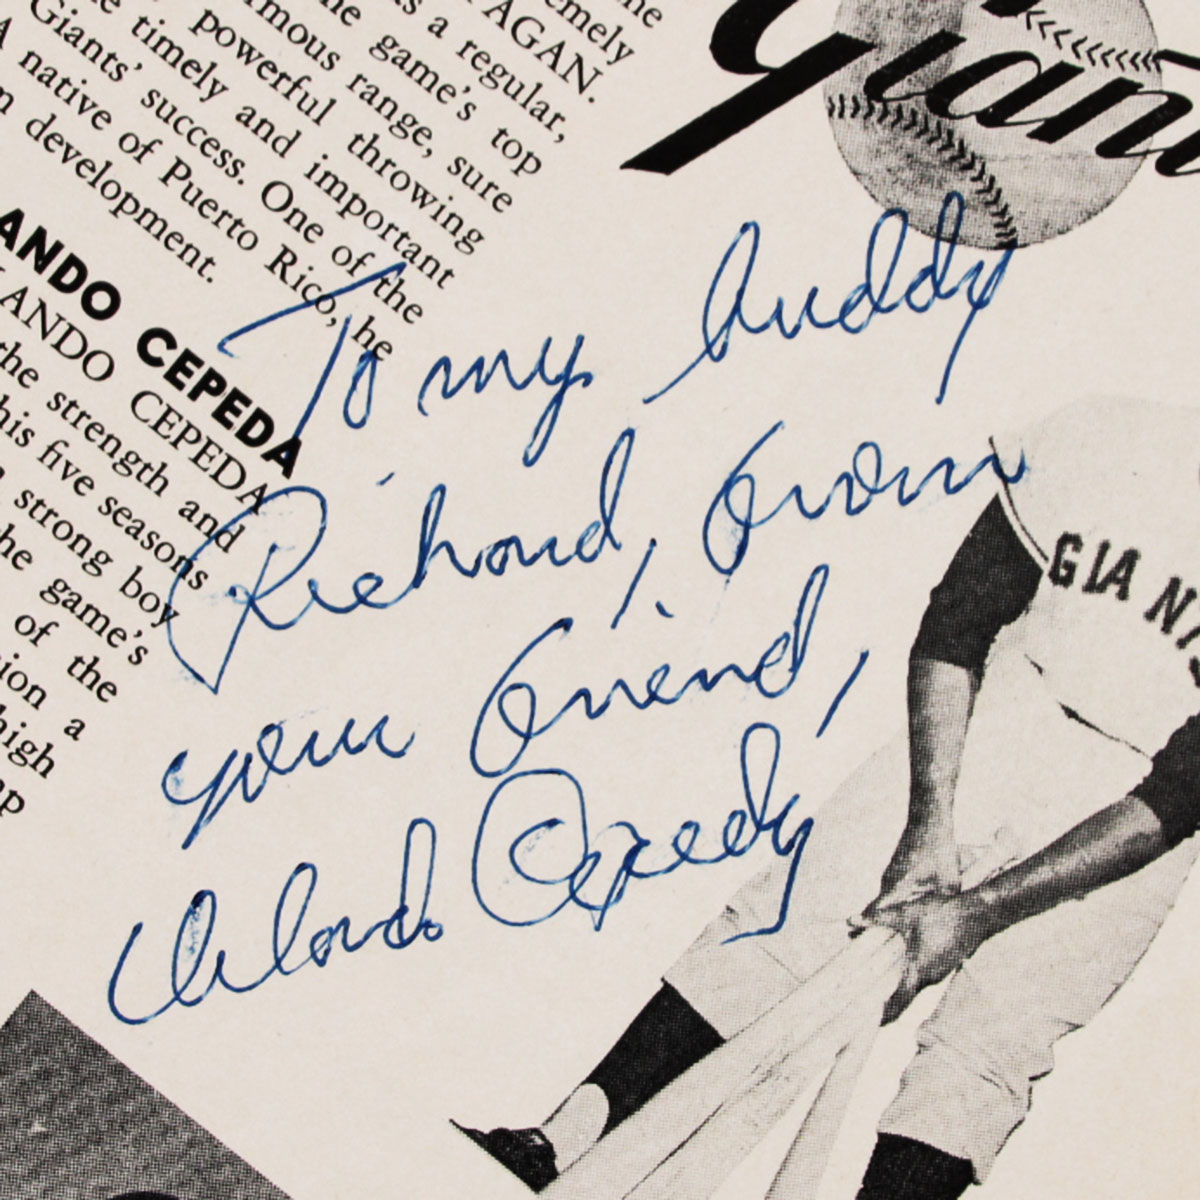 ne
emely
AGAN.
s a regular,
e game's top
mous range, sure
powerful throwing
e timely and important
Giants' success. One of the
A native of Puerto Rico, he
n development.
ANDO CEPEDA
ANDO CEPEDA
the strength and
his five seasons
strong boy
he game's
of the
ion a
high
Giants
To my buddy
Richard, from
your friend,
Orlando Cepeda
GIANTS